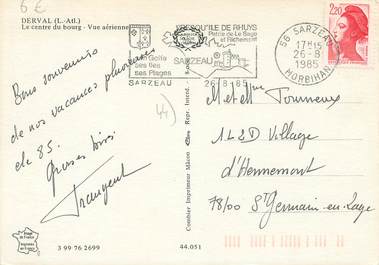 6€
DERVAL (L.-Atl.)
Le centre du bourg - Vue aérienne
PRESQU'ILE DE RHUYS
Patrie de Le Sage
et Richemont
Son Golfe
ses Iles
ses Plages
SARZEAU
SARZEAU
26-8-85
56 SARZEAU
17H15
26-8
1985
MORBIHAN
2,20
Bons souvenirs
de nos vacances pluvieuses
été 85.
Grosses bises
44
Combier Imprimeur Mâcon
M et Mme Tourneux
1 L2D Village
d'Hennemont
78100 St Germain-en-Laye
3 99 76 2699
44.051